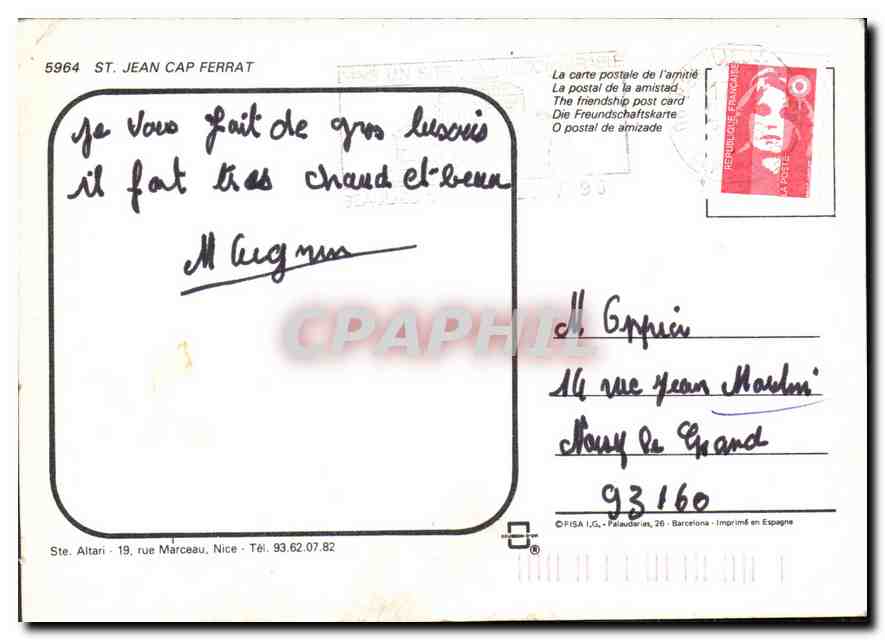 5964 ST. JEAN CAP FERRAT
je vous fait de gros bisous
il fait tres chaud et beau
M
La carte postale de l'amitié
La postal de la amistad
The friendship post card
Die Freundschaftskarte
O postal de amizade
RÉPUBLIQUE FRANÇAISE
LA POSTE
CPAPHIL
M
14 rue Jean Moulin
Noisy le Grand
93160
© FISA I,G, - Palaudarias, 26 - Barcelona - Imprimé en Espagne
Ste. Altari - 19, rue Marceau, Nice - Tél. 93.62.07.82